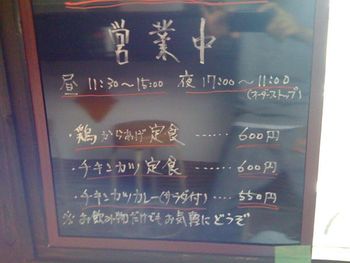 営業中
昼 11:30〜15:00 夜 17:00〜11:00
(オーダーストップ)
・鶏からあげ定食……600円
・チキンカツ定食……600円
・チキンカツカレー(サラダ付)…550円
※お飲み物だけでもお気軽にどうぞ